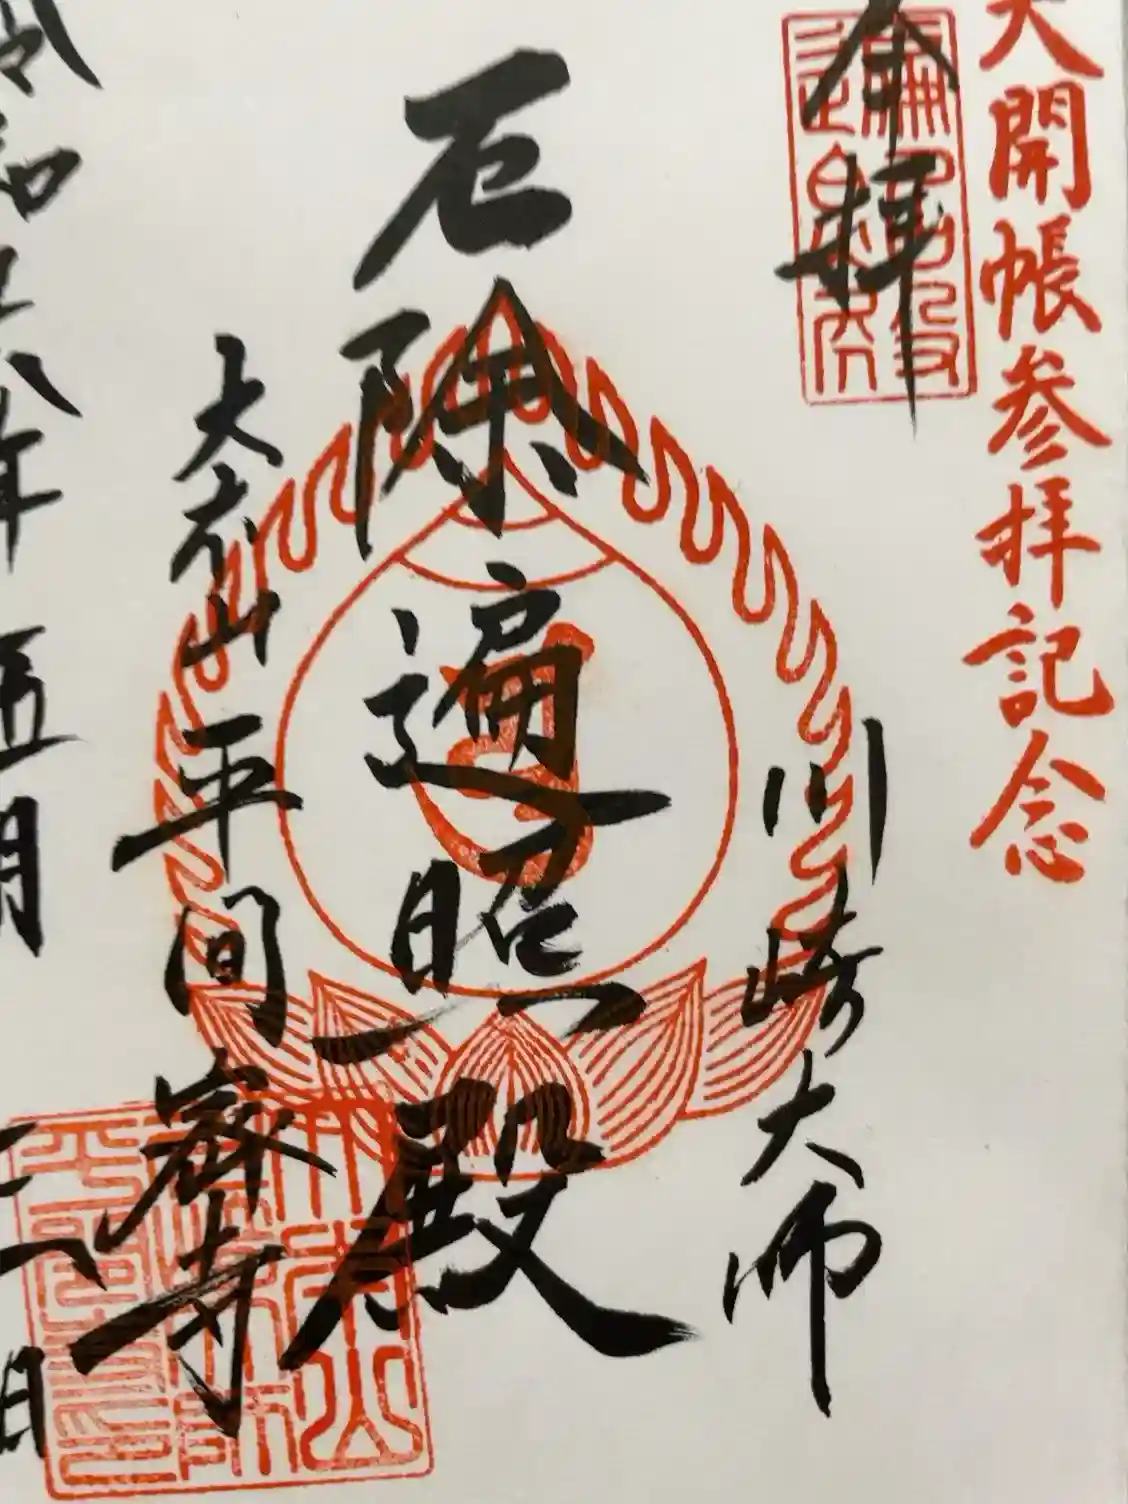 大開帳参拝記念
拝
川崎大師
厄除遍照殿
大本山平間寺
令和六年五月